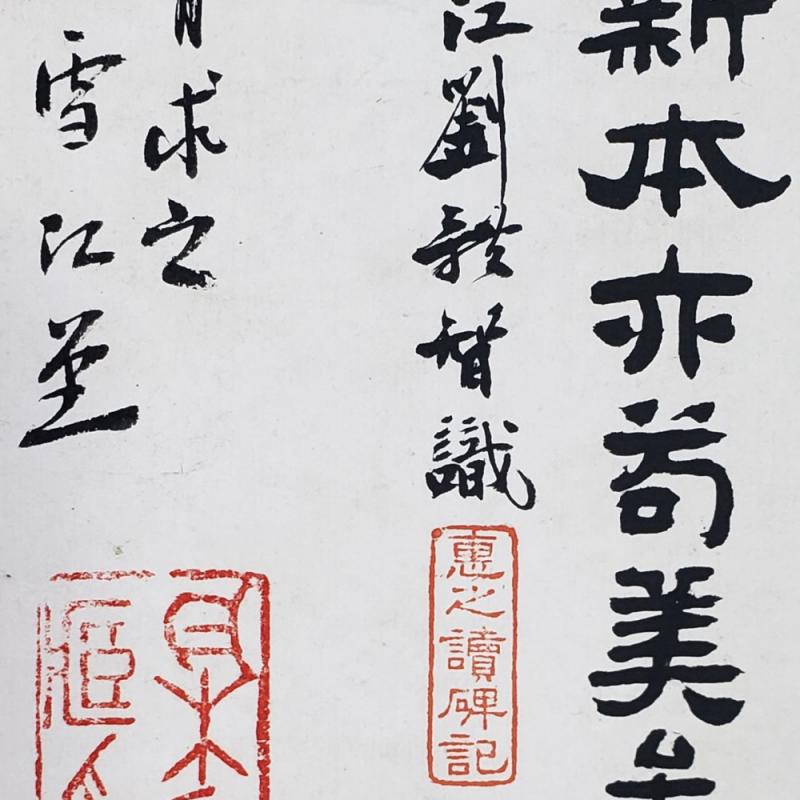 新本亦苟美
江劉體智識
惠之讀碑記
求之
雪江